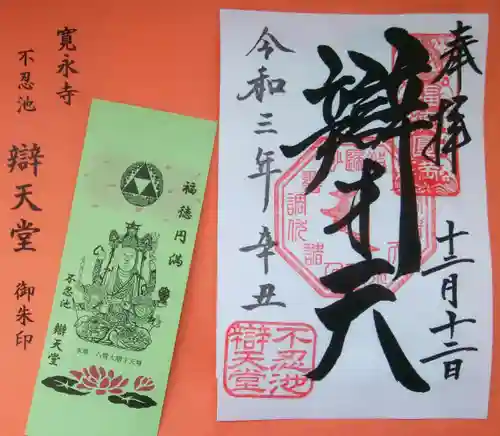 奉拝
十二月十二日
辯才天
令和三年辛丑
不忍池
辯天堂
寛永寺
不忍池
辯天堂
御朱印
福徳円満
不忍池
辯天堂